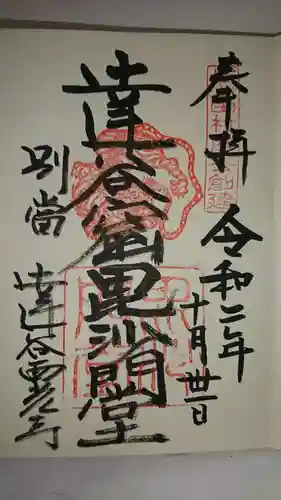 奉拝
令和二年
十月卅一日
達谷窟毘沙門堂
別當
達谷西光寺